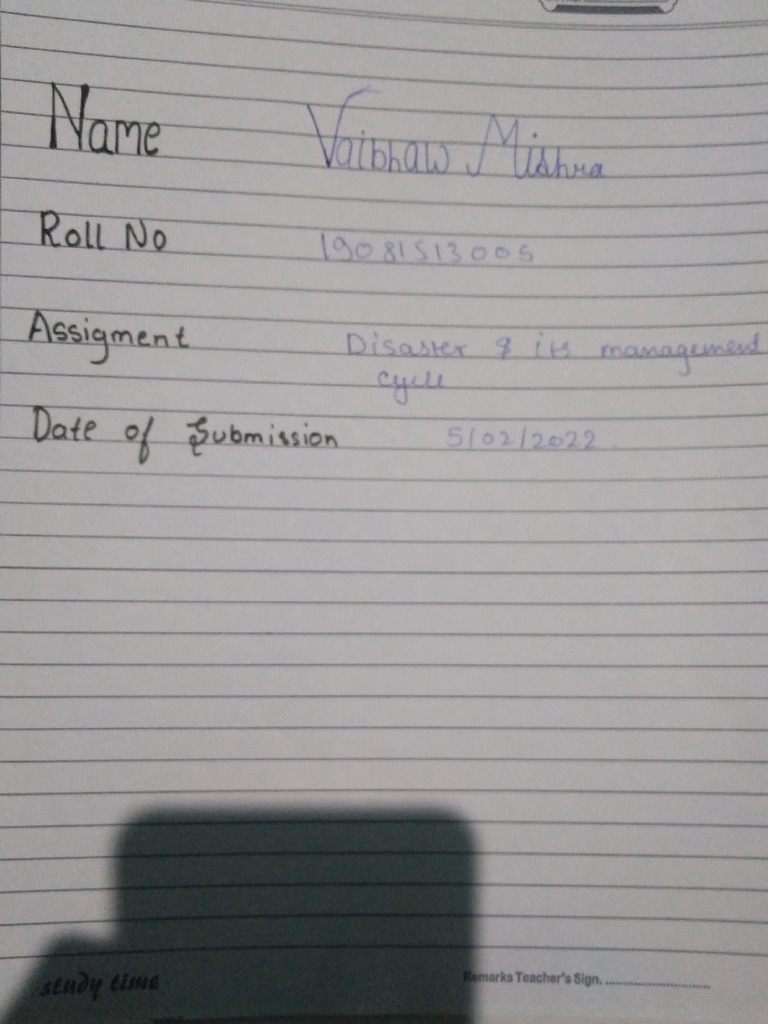 Name Vaibhaw Mishra
Roll No 19081513005
Assigment Disaster & its management
cycle
Date of Submission 5/02/2022
study time
Remarks Teacher's Sign. ........................